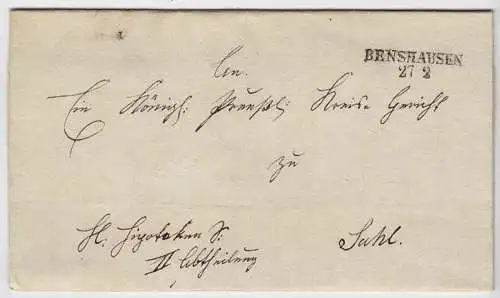 BENSHAUSEN
27 2
An
Ein Königl: Preußl: Kreis-Gericht
zu
Hypotheken S:
II Abtheilung
Suhl.